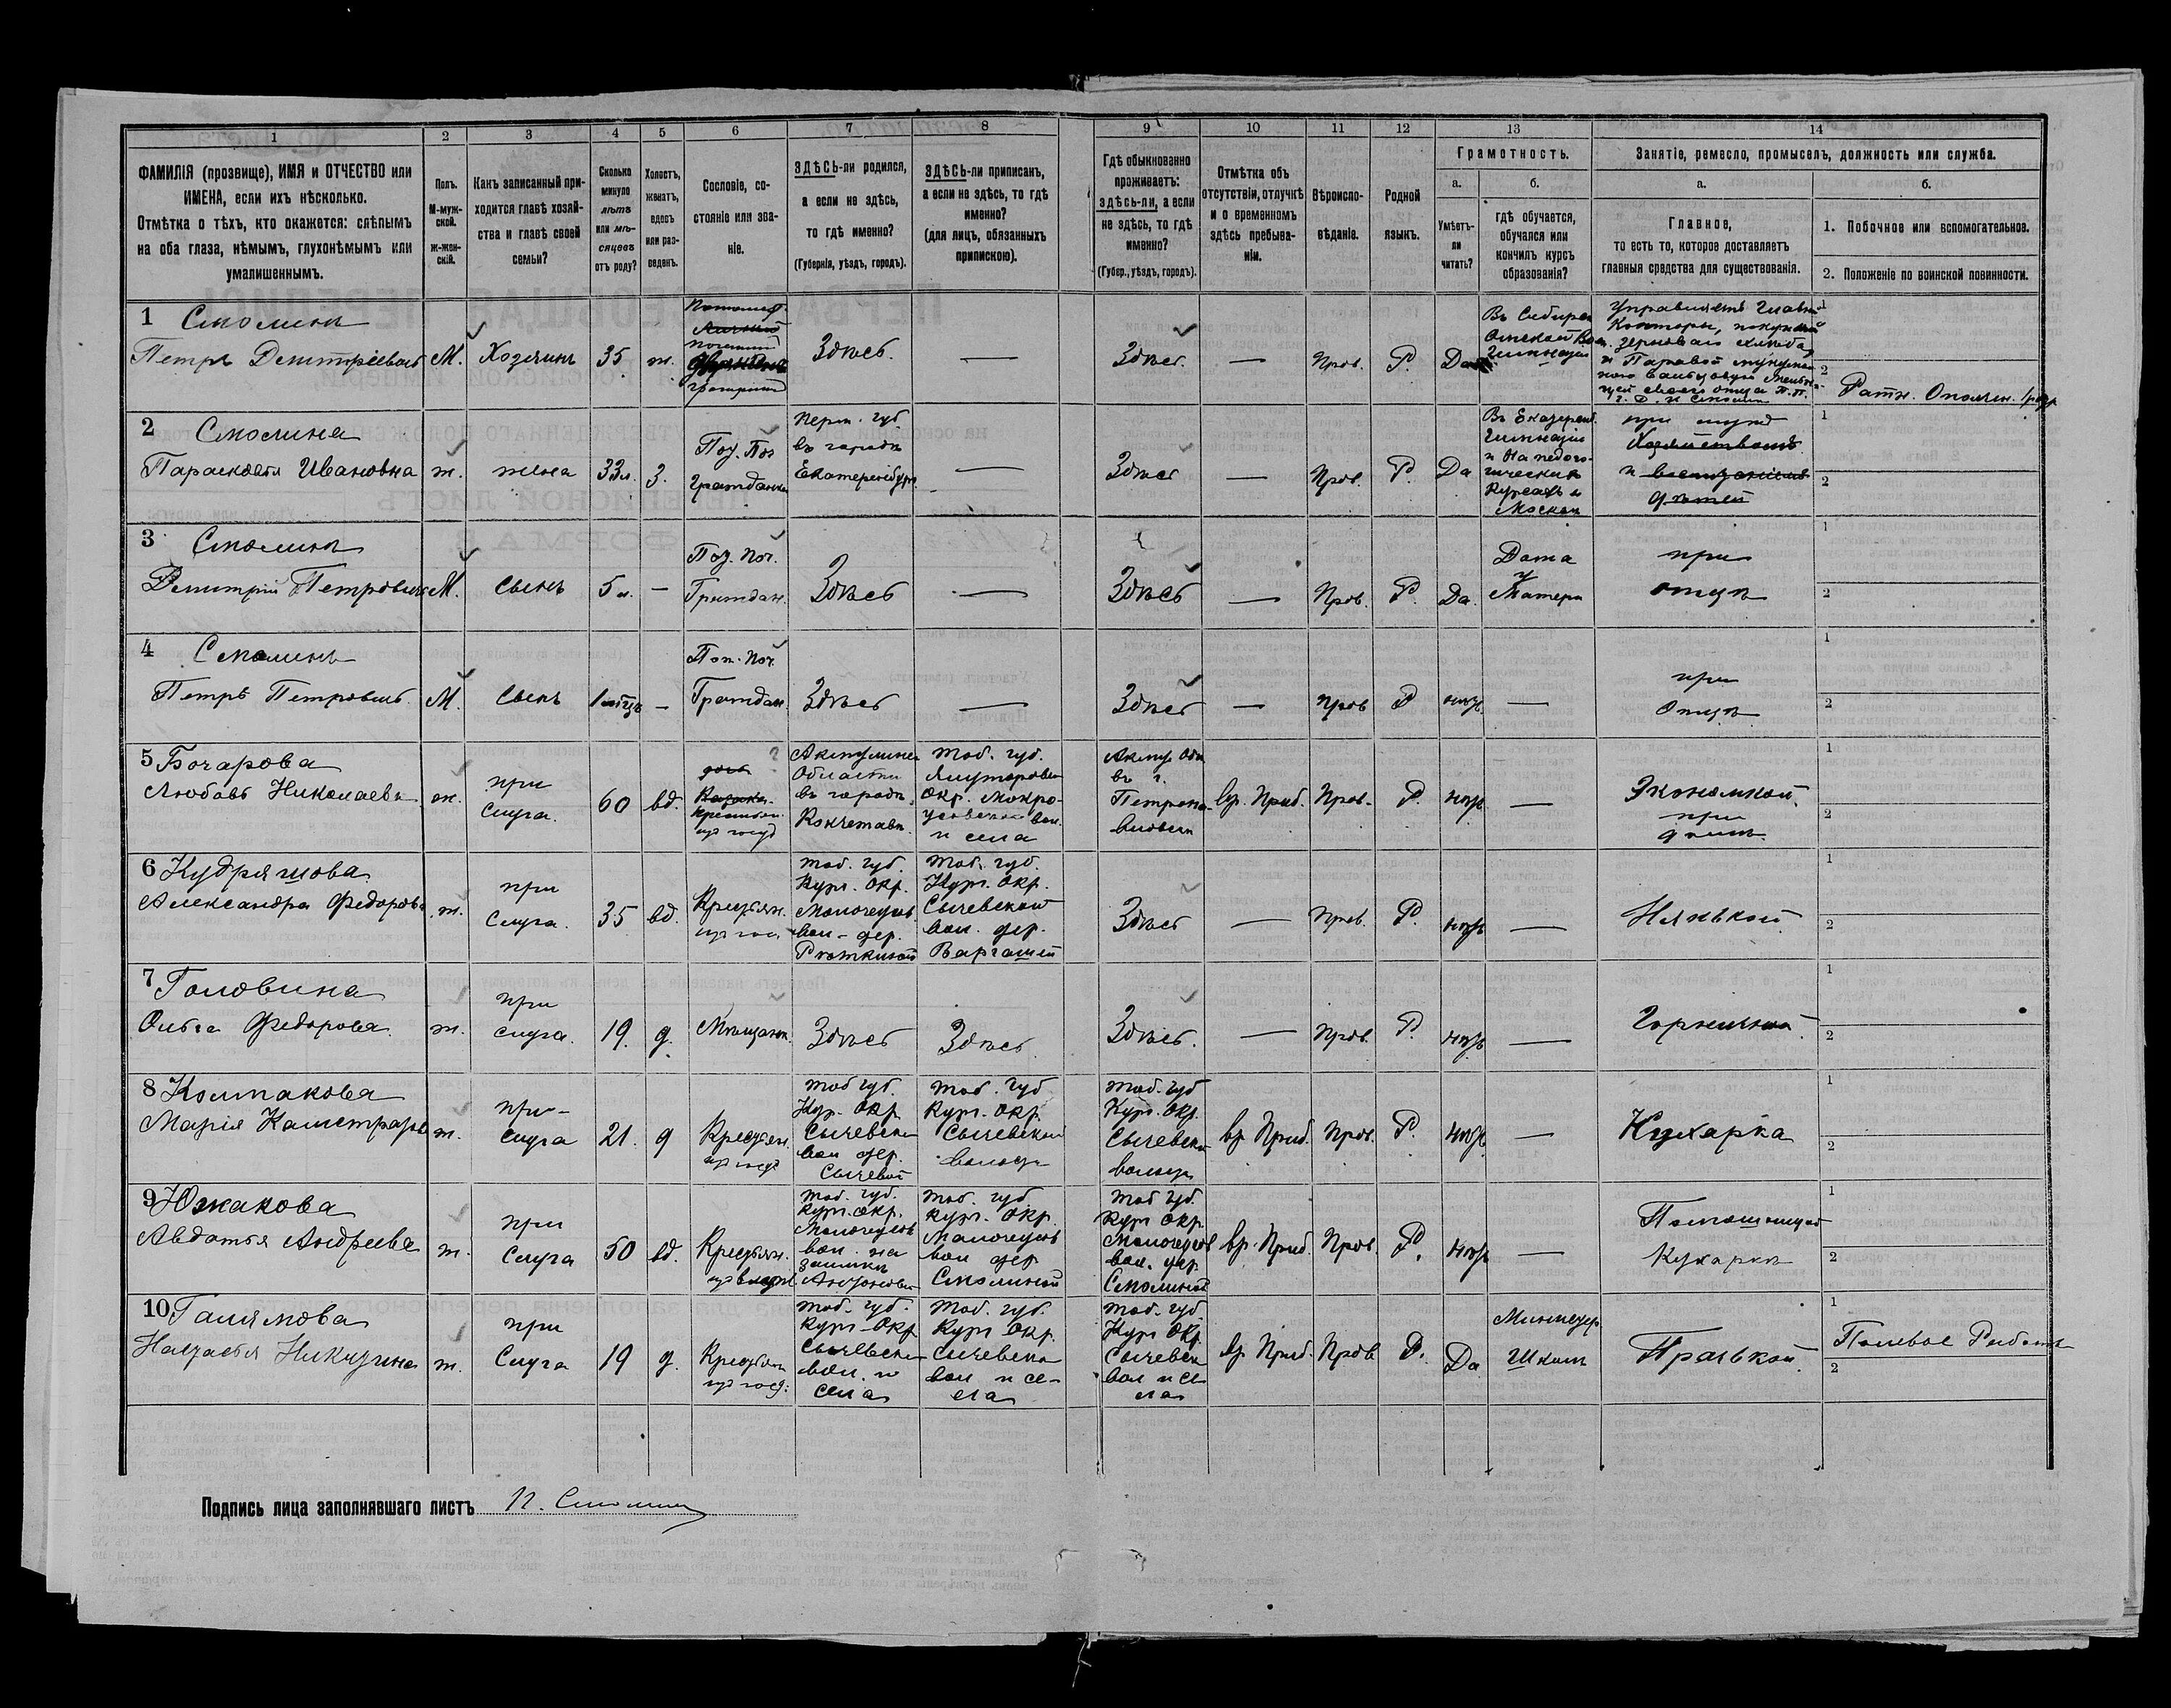 1 2 3 4 5 6 7 8 9 10 11 12 13 14
ФАМИЛІЯ (прозвище), ИМЯ и ОТЧЕСТВО или
ИМЕНА, если ихъ нѣсколько.
Отмѣтка о тѣхъ, кто окажется: слѣпымъ
на оба глаза, нѣмымъ, глухонѣмымъ или
умалишеннымъ.
Полъ.
М-муж-
ской.
ж-жен-
скій.
Какъ записанный при-
ходится главѣ хозяй-
ства и главѣ своей
семьи?
Сколько
минуло
лѣтъ
или мѣ-
сяцевъ
отъ роду?
Холостъ,
женатъ,
вдовъ
или раз-
веденъ.
Сословіе, со-
стояніе или зва-
ніе.
ЗДѢСЬ-ли родился,
а если не здѣсь,
то гдѣ именно?
(Губернія, уѣздъ, городъ).
ЗДѢСЬ-ли приписанъ,
а если не здѣсь, то гдѣ
именно?
(для лицъ, обязанныхъ
припискою).
Гдѣ обыкновенно
проживаетъ:
здѣсь-ли, а если
не здѣсь, то гдѣ
именно?
(Губер., уѣздъ, городъ).
Отмѣтка объ
отсутствіи, отлучкѣ
и о временномъ
здѣсь пребыва-
ніи.
Вѣроиспо-
вѣданіе.
Родной
языкъ.
Грамотность.
а.
Умѣетъ-
ли
читать?
б.
гдѣ обучается,
обучался или
кончилъ курсъ
образованія?
Занятіе, ремесло, промыселъ, должность или служба.
а.
Главное,
то есть то, которое доставляетъ
главныя средства для существованія.
б.
1. Побочное или вспомогательное.
2. Положеніе по воинской повинности.
1 Смолинъ
Петръ Дмитріевичъ М. Хозяинъ 35 ж.
Здѣсь. — Здѣсь. — Прав. Р. Да
Въ Сибирск
Омской
гимназіи
Управляетъ
Конторы,
2 Ратн. Ополчен.
2 Смолина
Парасковья Ивановна ж. жена 33 л. З.
Поч. Поч
гражданка
Перм. губ.
въ городѣ
Екатеринбург.
— Здѣсь — Прав. Р. Да
Въ Екатеринб.
гимназіи
и на педаго-
гическихъ
курсахъ въ
Москвѣ
при мужѣ
Хозяйствомъ
и воспитаніемъ
дѣтей
3 Смолинъ
Дмитрій Петровичъ М. сынъ 5 л. —
Пот. Поч.
Граждан.
Здѣсь — Здѣсь — Прав. Р. Да.
Дома
у
Матери
при
отцѣ
4 Смолинъ
Петръ Петровичъ М. Сынъ 1 мѣсц. —
Пот. Поч.
Граждан.
Здѣсь — Здѣсь — Прав Р нѣтъ —
при
Отцѣ
5 Бочарова
Любовь Николаевн. ж.
при
слуга. 60 вд.
Акмолинск
Области
въ городѣ
Кокчетавѣ.
Тоб. губ.
Ялуторовск
Окр. Мокро-
усовской вол.
и села
Акмол Обл
въ г.
Петропа-
вловскѣ
вр. Приб. Прав. Р. нѣтъ —
Экономкой
при
домѣ
6 Кудряшова
Александра Федорова ж.
при
слуга. 35 вд.
Крестьян.
Тоб. губ.
Кург. Окр.
вол. дер.
Тоб. губ.
Кург. Окр.
Сычевской
вол. дер.
Варгашей
Здѣсь — Прав. Р. нѣтъ — Нянькой
7 Головина
Ольга Федорова ж.
при
слуга. 19. д. Мѣщанк. Здѣсь Здѣсь Здѣсь. — Прав. Р. нѣтъ — Горничной
8 Колмакова
Марія Калистратов ж.
при-
слуга 21. д
Крестьян
Тоб губ.
Кур. Окр.
Сычевск
вол дер.
Сычевой
Тоб. губ
Кург. Окр.
Сычевской
волости
Тоб. губ
Кург. Окр.
Сычевск
волости
вр Приб. Прав. Р. нѣтъ — Кухарка
9 Южакова
Авдотья Андреева ж.
при
слуга 50 вд.
Крестьян.
Тоб. губ.
Кург. Окр.
вол. на
заимки
Тоб. губ
Кург. Окр.
вол дер
Смолиной
Тоб губ.
Кург Окр.
вол. дер
Смолиной
вр. Приб. Прав. Р. нѣтъ —
Помощница
Кухарки
10 Галямова
Настасья Никитина ж.
при
Слуга 19 д.
Крестьян
Тоб. губ.
Кург. Окр
Сычевск
вол. и
села
Тоб. губ.
Кург Окр.
Сычевск
вол и се-
ла
Тоб. губ
Кург Окр.
Сычевск
вол и се-
ла
вр. Приб. Прав Р. Да
Министер
Школѣ
Прачкой
Полевые Работы
Подпись лица заполнявшаго листъ П. Смолинъ